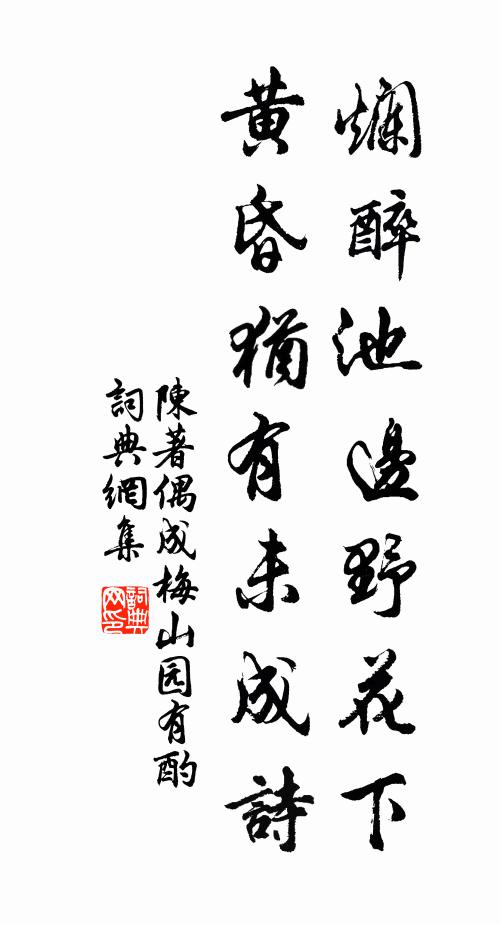 爛醉池邊野花下
黃昏猶有未成詩
陳著偶成梅山园有酌
詞典網集
詞典网印